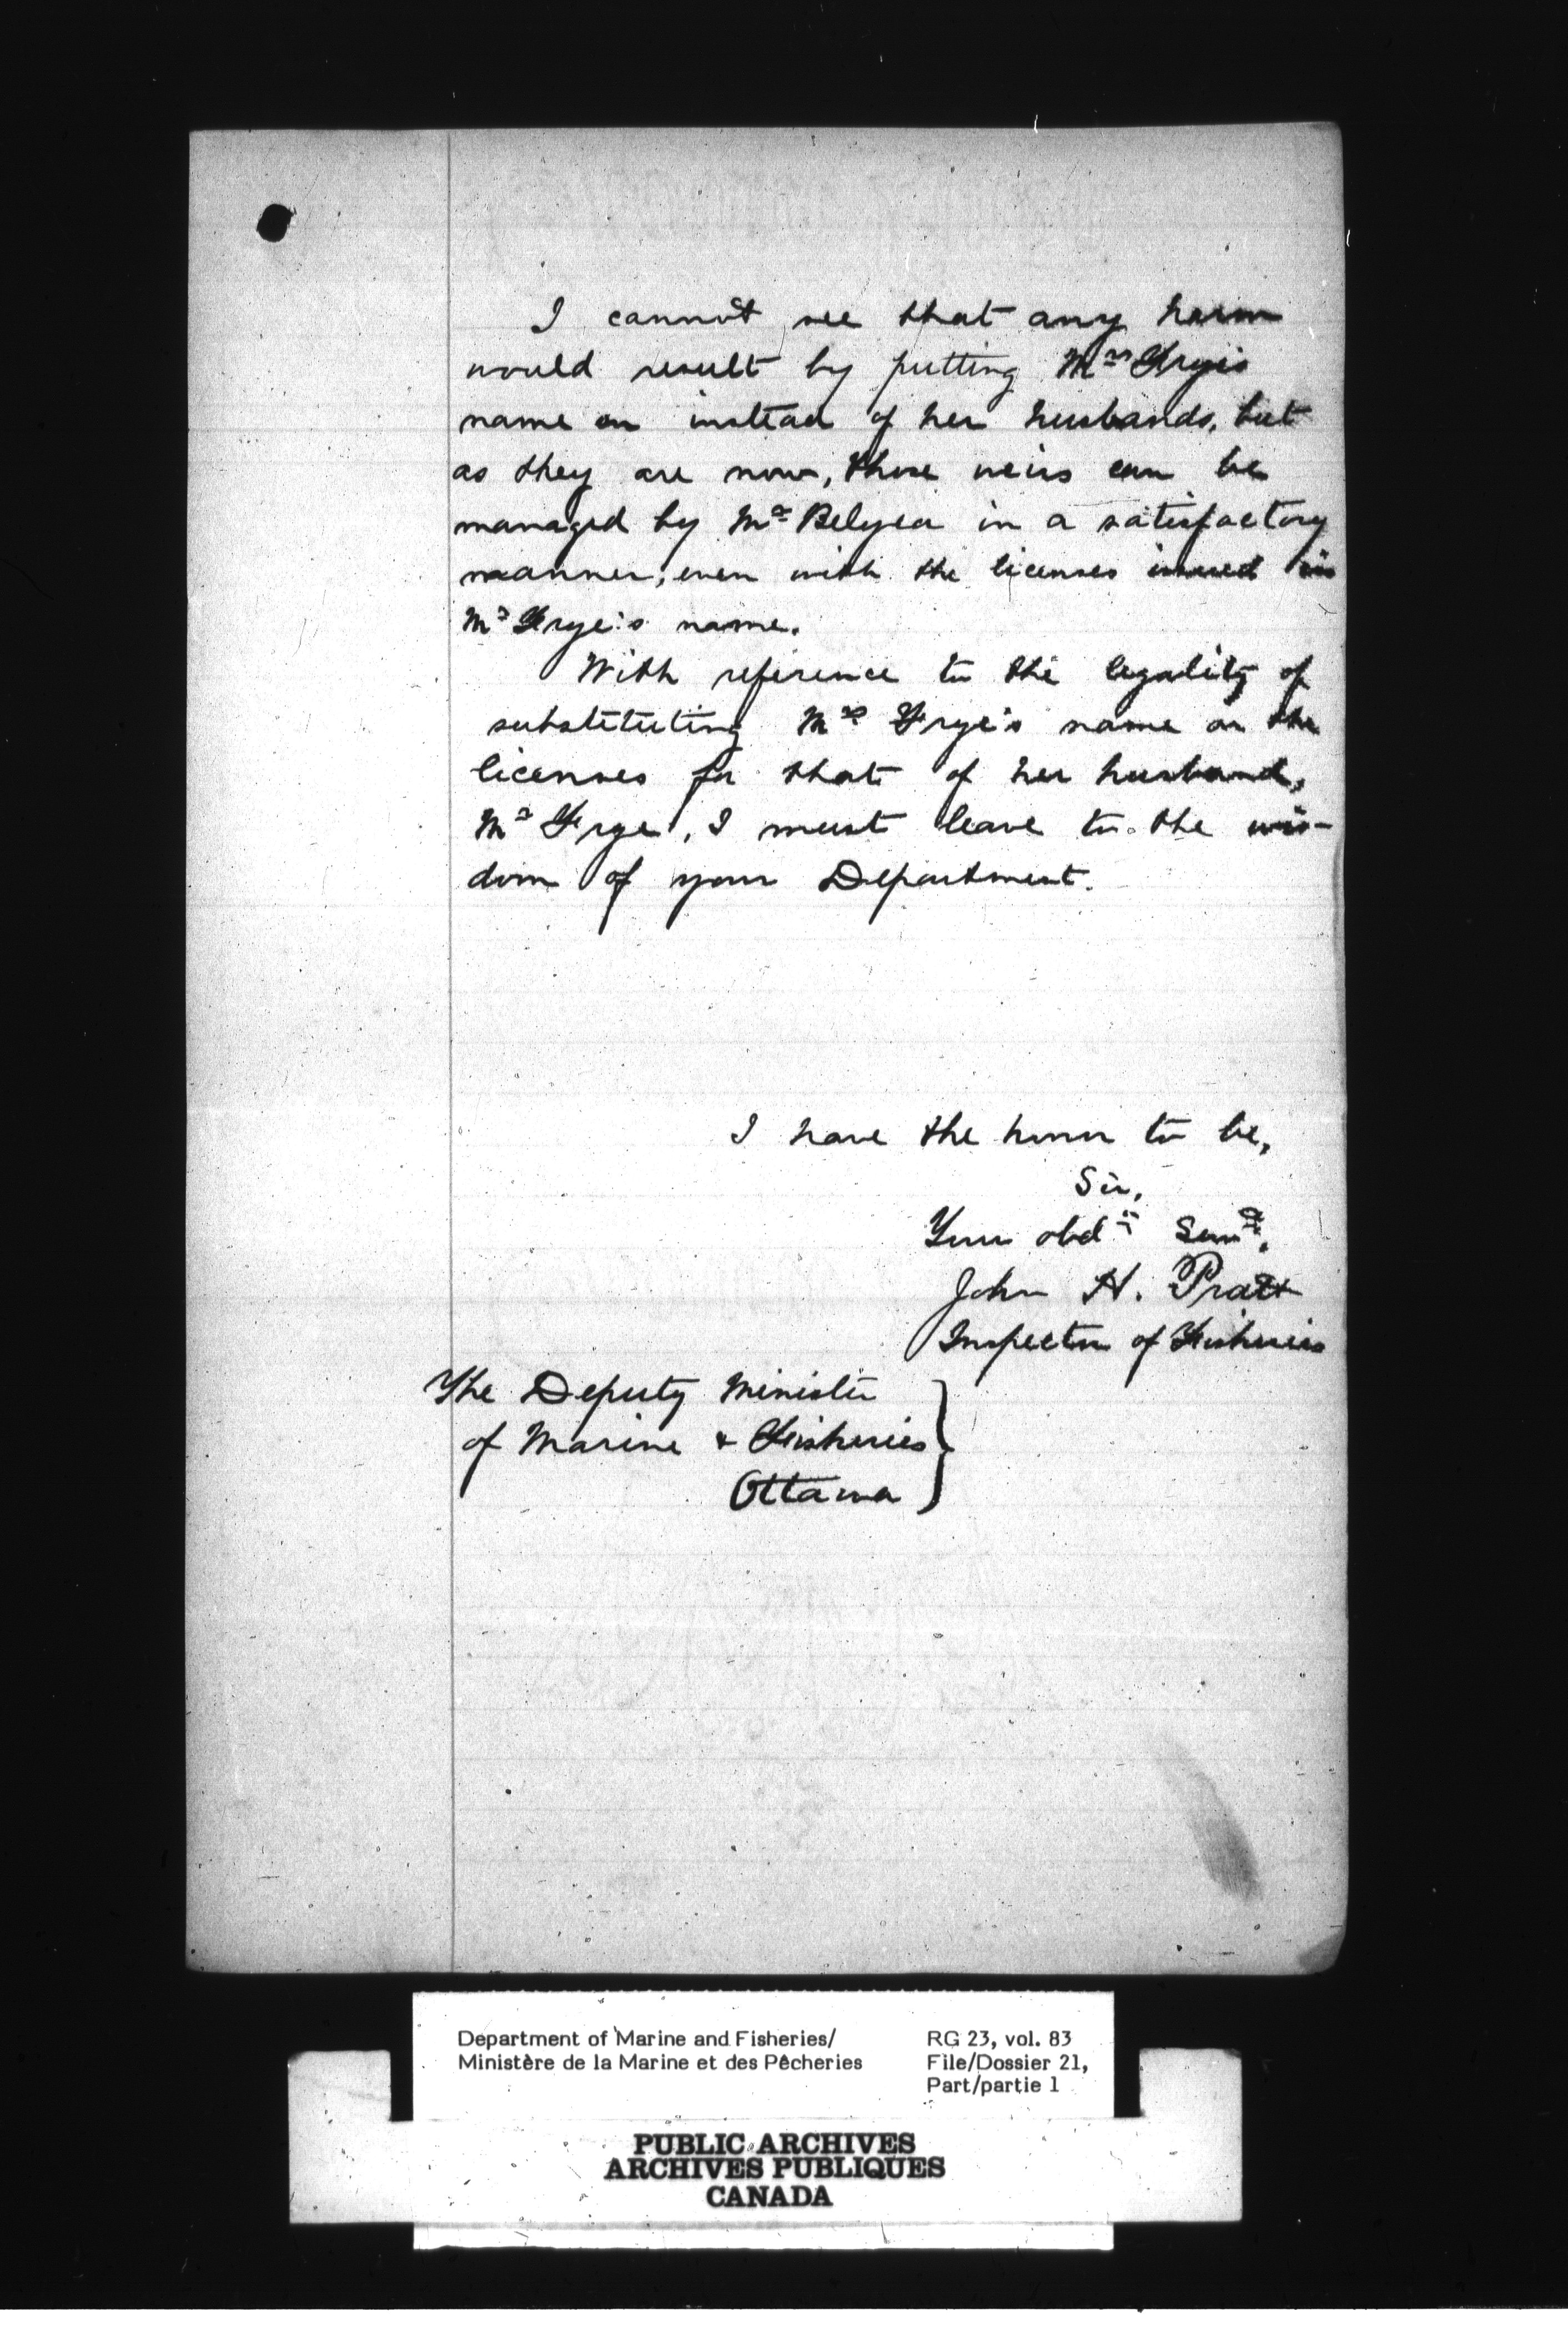 I cannot see that any harm
would result by putting Mrs Frye's
name on instead of her husbands, but
as they are now, those weirs can be
managed by Mr Belyea in a satisfactory
manner, even with the licenses issued in
Mr Frye's name.
With reference to the legality of
substituting Mrs Frye's name on the
licenses for that of her husband,
Mr Frye, I must leave to the wis-
dom of your Department.
I have the honor to be,
Sir,
Your obdt Servt,
John H. Pratt
Inspector of Fisheries
The Deputy Minister
of Marine & Fisheries
Ottawa
Department of Marine and Fisheries/
Ministère de la Marine et des Pêcheries
RG 23, vol. 83
File/Dossier 21,
Part/partie 1
PUBLIC ARCHIVES
ARCHIVES PUBLIQUES
CANADA